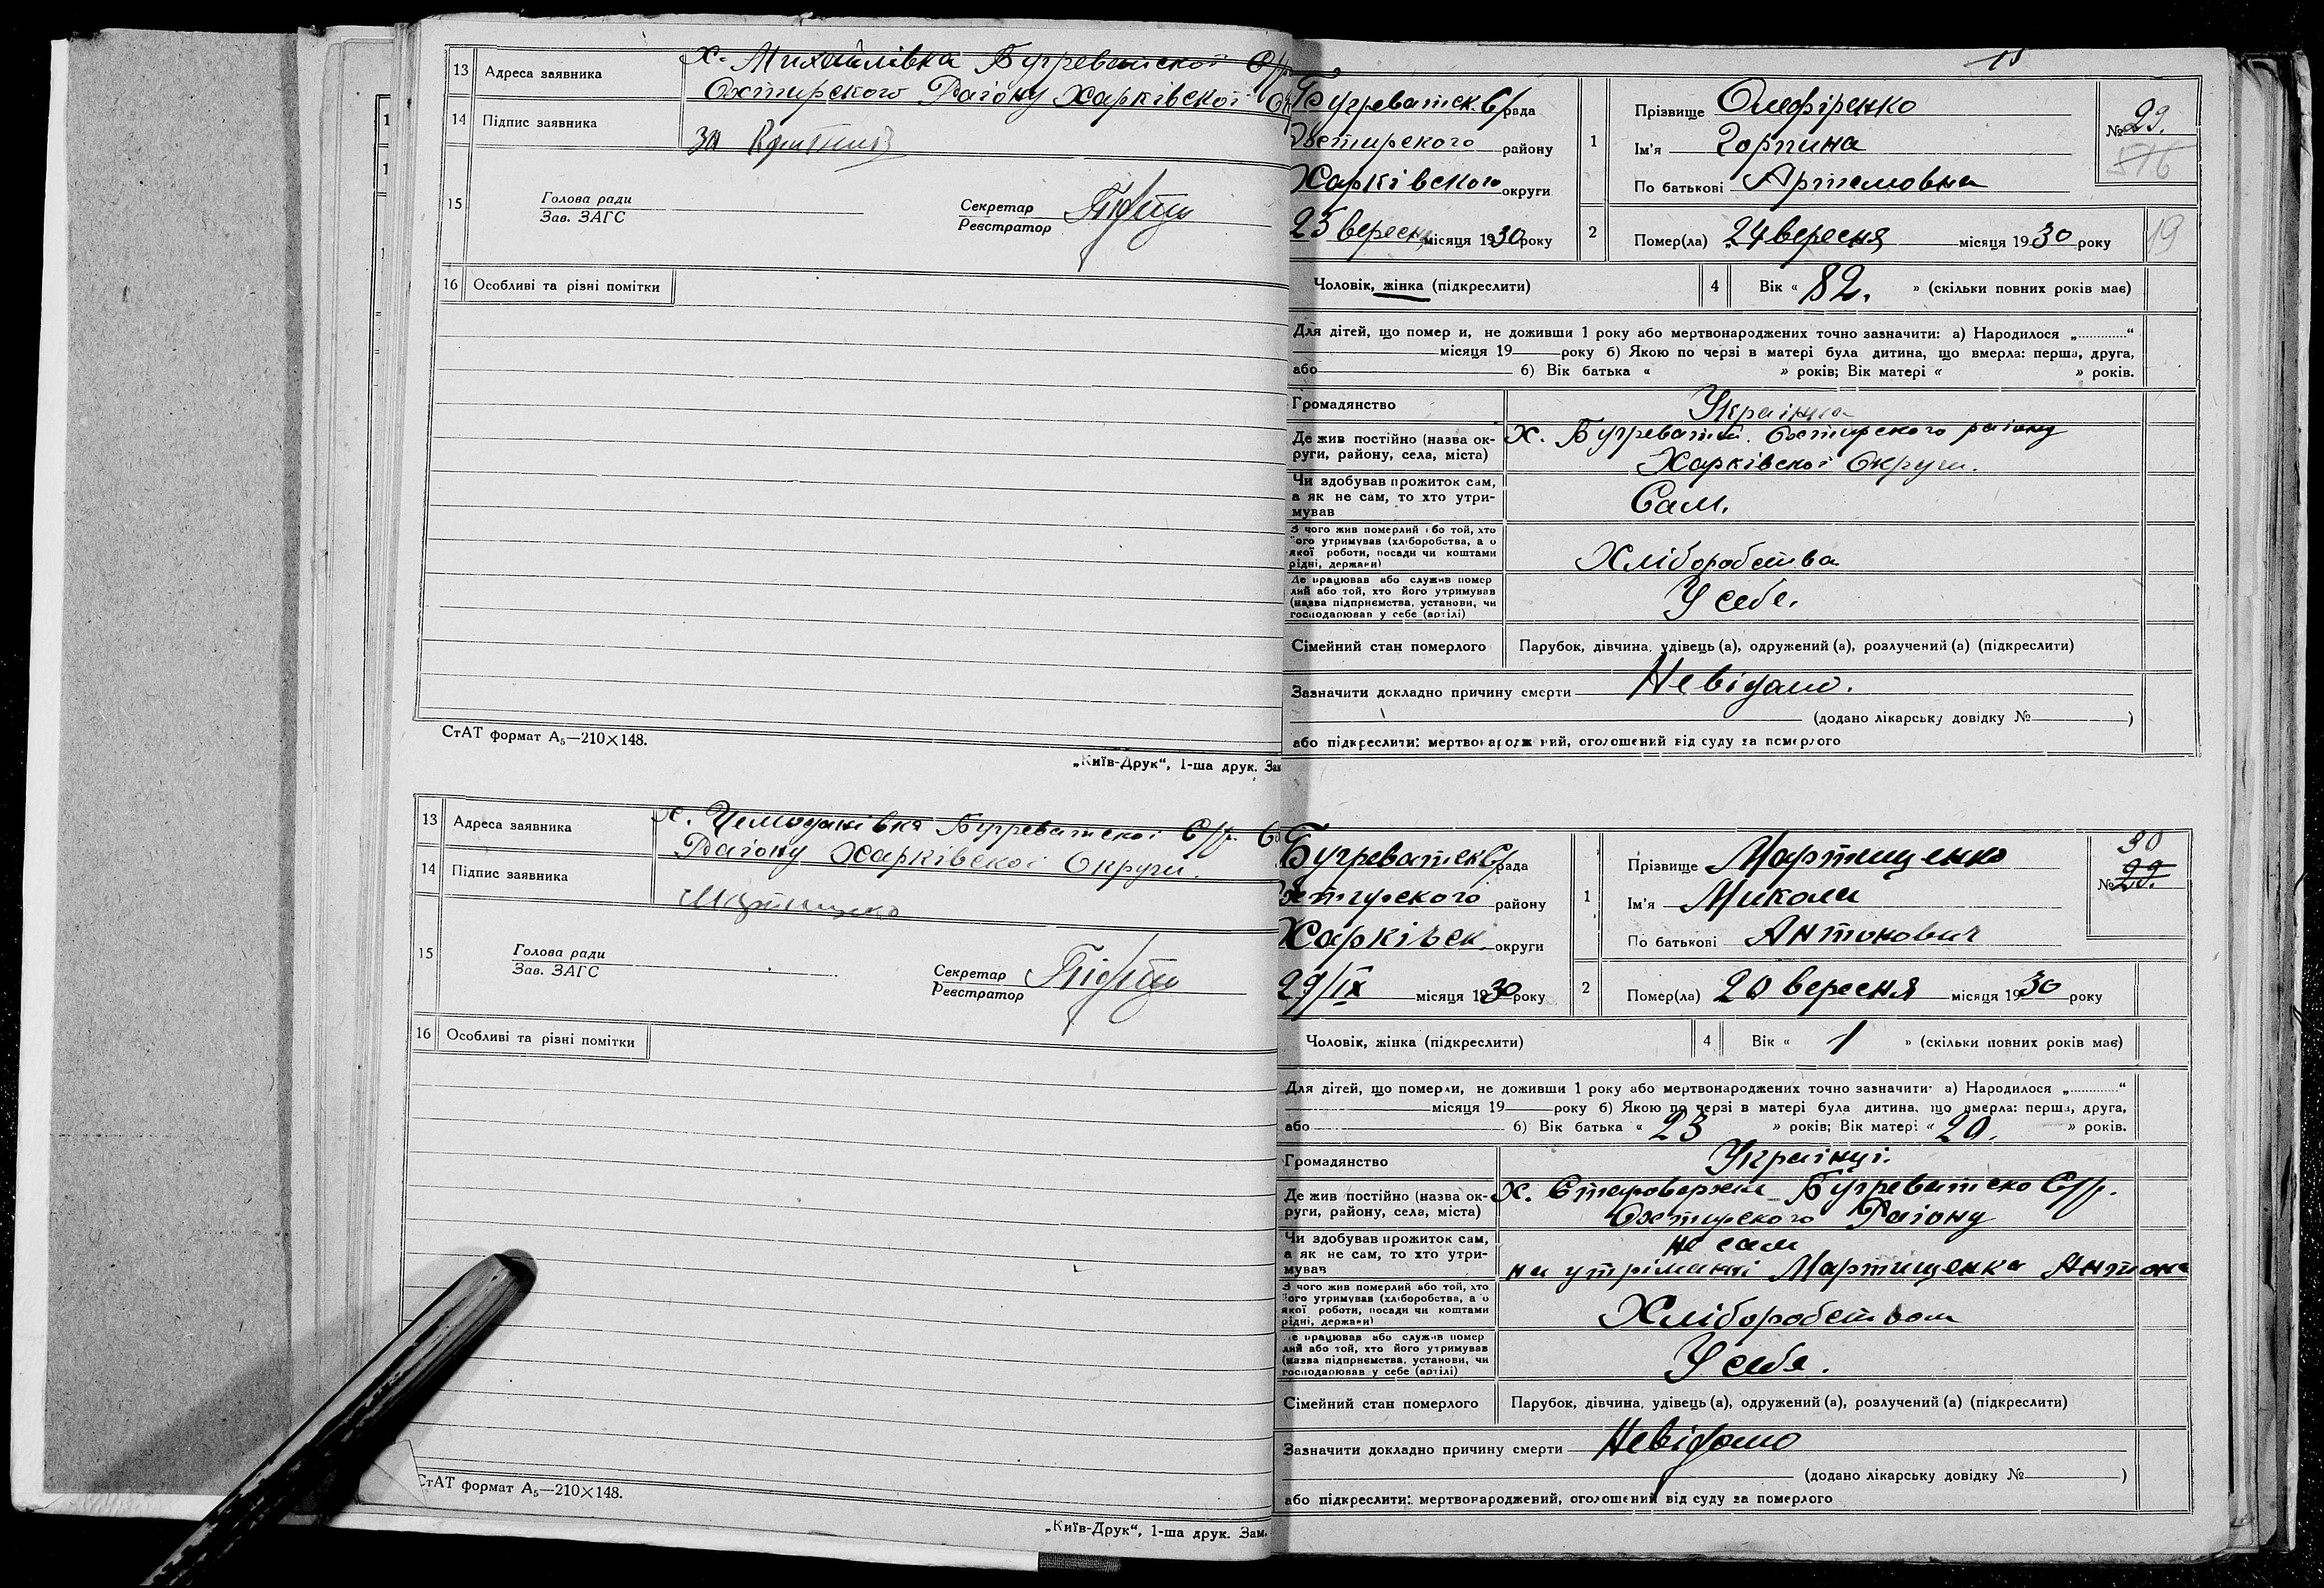 13 Адреса заявника х. Михайлівка Бугреватскої С/р
Охтирского Району Харківскої
14 Підпис заявника за
15 Голова ради
Зав. ЗАГС
Секретар
Реєстратор
16 Особливі та різні помітки
СтАТ формат А₅—210×148.
„Київ-Друк“, 1-ша друк. Зам
13 Адреса заявника х. Чемоданівка Бугреватскої С/р.
Району Харківскої Округи.
14 Підпис заявника Мартищенко
15 Голова ради
Зав. ЗАГС
Секретар
Реєстратор
16 Особливі та різні помітки
СтАТ формат А₅—210×148.
„Київ-Друк“, 1-ша друк. Зам.
15
Бугреватск. С/рада
Охтирского району
Харківского округи
25 вересн місяця 1930 року
1 Прізвище Олефіренко
Ім'я Горпина
По батькові Артемовна
№ 29.
516
2 Помер(ла) 24 вересня місяця 1930 року
19
Чоловік, жінка (підкреслити) 4 Вік « 82. » (скільки повних років має)
Для дітей, що помер и, не доживши 1 року або мертвонароджених точно зазначити: а) Народилося „............“
місяця 19 року б) Якою по черзі в матері була дитина, що вмерла: перша, друга,
або 6) Вік батька « » років; Вік матері « » років.
Громадянство Українка
Де жив постійно (назва ок-
руги, району, села, міста) х. Бугреватий. Охтирского району
Харківскої Округи.
Чи здобував прожиток сам,
а як не сам, то хто утри-
мував Сам.
З чого жив померлий або той, хто
його утримував (хліборобства, а о
якої роботи, посади чи коштами
рідні, держави) Хліборобства
Де працював або служив помер
лий або той, хто його утримував
(назва підприємства, установи, чи
господарював у себе (артілі) У себе.
Сімейний стан померлого Парубок, дівчина, удівець (а), одружений (а), розлучений (а) (підкреслити)
Зазначити докладно причину смерти Невідомо.
(додано лікарську довідку № )
або підкреслити: мертвонародж ний, оголошений від суду за померлого
Бугреватск С/рада
Охтирского району
Харківск. округи
29/IX місяця 1930 року
1 Прізвище Мартищенко
Ім'я Микола
По батькові Антонович
30
№ 29.
2 Помер(ла) 20 вересня місяця 1930 року
Чоловік, жінка (підкреслити) 4 Вік « 1 » (скільки повних років має)
Для дітей, що померли, не доживши 1 року або мертвонароджених точно зазначити: а) Народилося „............“
місяця 19 року б) Якою по черзі в матері була дитина, що вмерла: перша, друга,
або 6) Вік батька « 23 » років; Вік матері « 20. » років.
Громадянство Українці.
Де жив постійно (назва ок-
руги, району, села, міста) х. Бугреватско С/р.
Охтирского Району
Чи здобував прожиток сам,
а як не сам, то хто утри-
мував не сам
на утріманні Мартищенка Антона
З чого жив померлий або той, хто
його утримував (хліборобства, а о
якої роботи, посади чи коштами
рідні, держави) Хліборобством
Де працював або служив помер
лий або той, хто його утримував
(назва підприємства, установи, чи
господарював у себе (артілі) У себе.
Сімейний стан померлого Парубок, дівчина, удівець (а), одружений (а), розлучений (а) (підкреслити)
Зазначити докладно причину смерти Невідомо
(додано лікарську довідку № )
або підкреслити: мертвонароджений, оголошений від суду за померлого